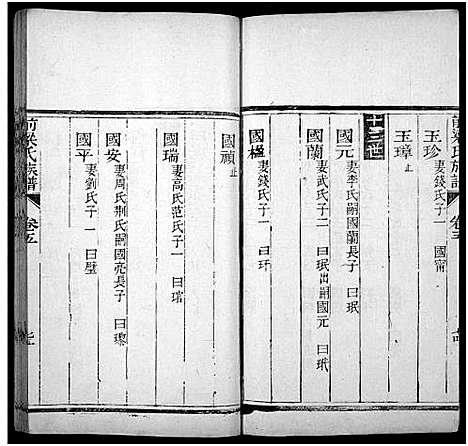 前梁氏族譜 卷五
玉珍 妻錢氏子一 國甯
玉璋 止
十三世
國元 妻李氏嗣國蘭長子 曰珉
國蘭 妻武氏子二 曰珉出嗣國元 曰玳
妻錢氏子一 曰玕
國禎 止
國瑞 妻高氏范氏子一 曰瑎
國安 妻周氏荆氏嗣國亮長子 曰瓈
國平 妻劉氏子一 曰璧
前梁氏族譜 卷五